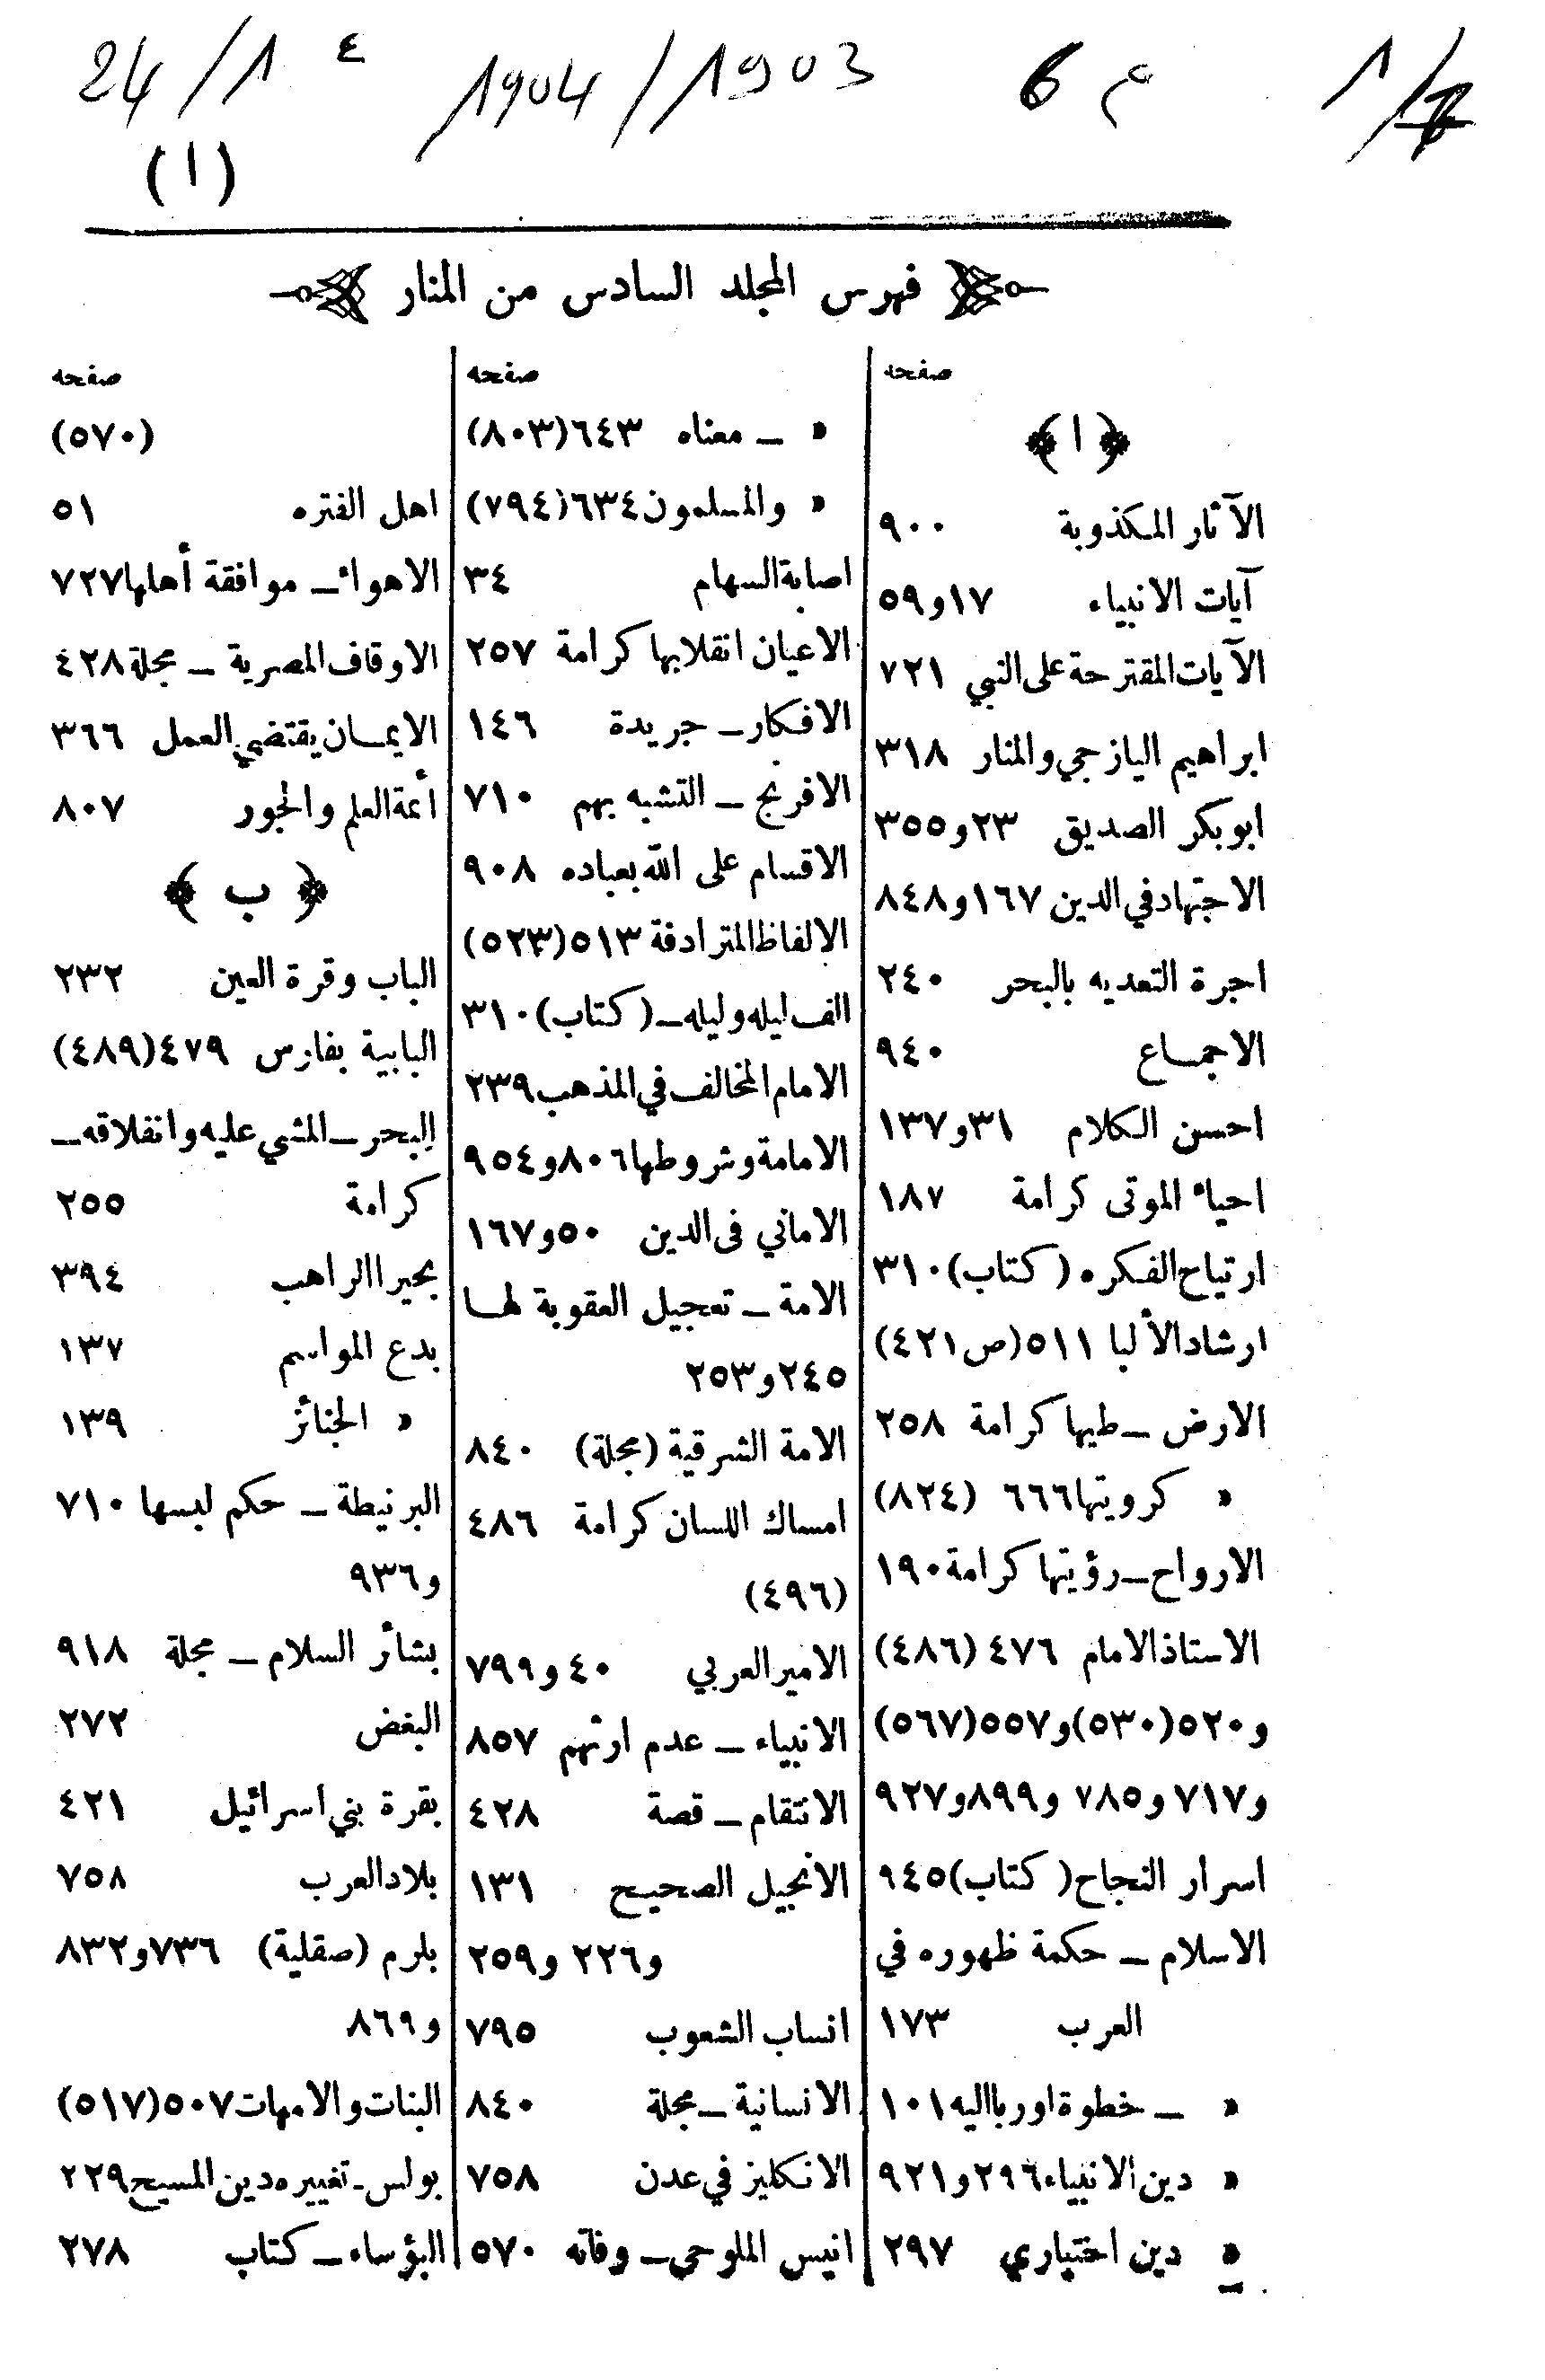 24/1 ٤ 1904/1903 6 م 1/
(١)
فهرس المجلد السادس من المنار
صفحه
﴿ ا ﴾
الآثار المكذوبة ٩٠٠
آيات الانبياء ١٧و٥٩
الآيات المقترحة على النبي ٧٢١
ابراهيم اليازجي والمنار ٣١٨
ابوبكر الصديق ٢٣و٣٥٥
الاجتهاد في الدين ١٦٧و٨٤٨
اجرة التعديه بالبحر ٢٤٠
الاجمـاع ٩٤٠
احسن الكلام ٣١و١٣٧
احياء الموتى كرامة ١٨٧
ارتياح الفكره (كتاب) ٣١٠
ارشاد الألبا ٥١١(ص٤٢١)
الارض ــ طيها كرامة ٢٥٨
« كرويتها ٦٦٦ (٨٢٤)
الارواح ــ رؤيتها كرامة ١٩٠
الاستاذ الامام ٤٧٦ (٤٨٦)
و٥٢٠(٥٣٠)و٥٥٧(٥٦٧)
و٧١٧ و٧٨٥ و٨٩٩و٩٢٧
اسرار النجاح (كتاب) ٩٤٥
الاسلام ــ حكمة ظهوره في
العرب ١٧٣
« ــ خطوة اوربا اليه ١٠١
« دين الانبياء ٢٩٦ و٩٢١
« دين اختياري ٢٩٧
صفحه
« ــ معناه ٦٤٣(٨٠٣)
« والمسلمون ٦٣٤(٧٩٤)
اصابة السهام ٣٤
الاعيان انقلابها كرامة ٢٥٧
الافكار ــ جريدة ١٤٦
الافرنج ــ التشبه بهم ٧١٠
الاقسام على الله بعباده ٩٠٨
الالفاظ المترادفة ٥١٣(٥٢٣)
الف ليله وليله ــ (كتاب) ٣١٠
الامام المخالف في المذهب ٢٣٩
الامامة وشروطها ٨٠٦و٩٥٤
الاماني فى الدين ٥٠و١٦٧
الامة ــ تعجيل العقوبة لهـا
٢٤٥و٢٥٣
الامة الشرقية (مجلة) ٨٤٠
امساك اللسان كرامة ٤٨٦
(٤٩٦)
الامير العربي ٤٠ و٧٩٩
الانبياء ــ عدم ارثهم ٨٥٧
الانتقام ــ قصة ٤٢٨
الانجيل الصحيح ١٣١
و٢٢٦ و٢٥٩
انساب الشعوب ٧٩٥
الانسانية ــ مجلة ٨٤٠
الانكليز في عدن ٧٥٨
انيس الملوحي ــ وفاته ٥٧٠
صفحه
(٥٧٠)
اهل الفتره ٥١
الاهواء ــ موافقة أهلها ٧٢٧
الاوقاف المصرية ــ مجلة ٤٢٨
الايمـان يقتضي العمل ٣٦٦
أئمة العلم والجور ٨٠٧
﴿ ب ﴾
الباب وقرة العين ٢٣٢
البابية بفارس ٤٧٩(٤٨٩)
البحر ــ المشي عليه وانفلاقه ــ
كرامة ٢٥٥
بحيرا الراهب ٣٩٤
بدع المواسم ١٣٧
« الجنائز ١٣٩
البرنيطة ــ حكم لبسها ٧١٠
و٩٣٦
بشائر السلام ــ مجلة ٩١٨
البغض ٢٧٢
بقرة بني اسرائيل ٤٢١
بلاد العرب ٧٥٨
بلرم (صقلية) ٧٣٦و٨٣٢
و٨٦٩
البنات والامهات ٥٠٧(٥١٧)
بولس ـ تغييره دين المسيح ٢٢٩
البؤساء ــ كتاب ٢٧٨